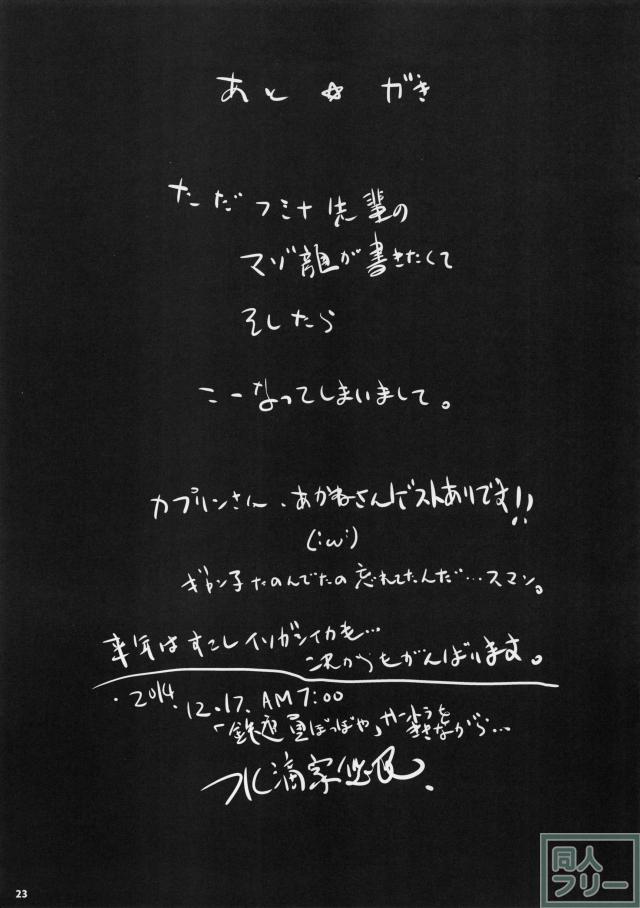 あと☆がき
ただフミナ先輩の
マゾ龍が書きたくて
そしたら
こーなってしまいまして。
カプリンさん、あかねさんゲストありです!!
(:ω:)
ギャン子たのんでたの忘れてたんだ…スマン。
来年はすこしイソガシイカも…
これからもがんばります。
・2014.12.17.AM7:00
「鉄道員ぽっぽや」サントラを
ききながら…
水滴家
23
同人
フリー